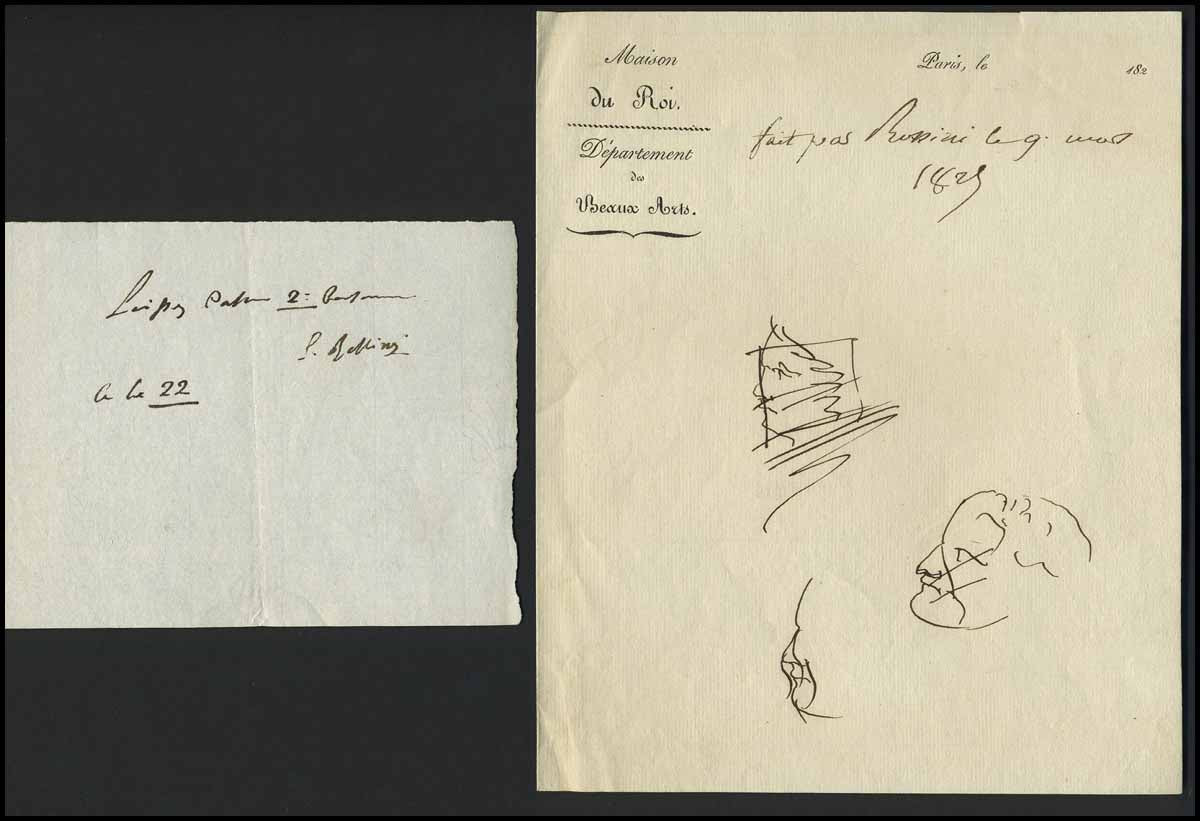 Laissez passer 2: personnes
G. Rossini
Ce le 22
Maison
du Roi.
Département
des
Beaux Arts.
Paris, le 182
fait par Rossini le 9. mars
1829